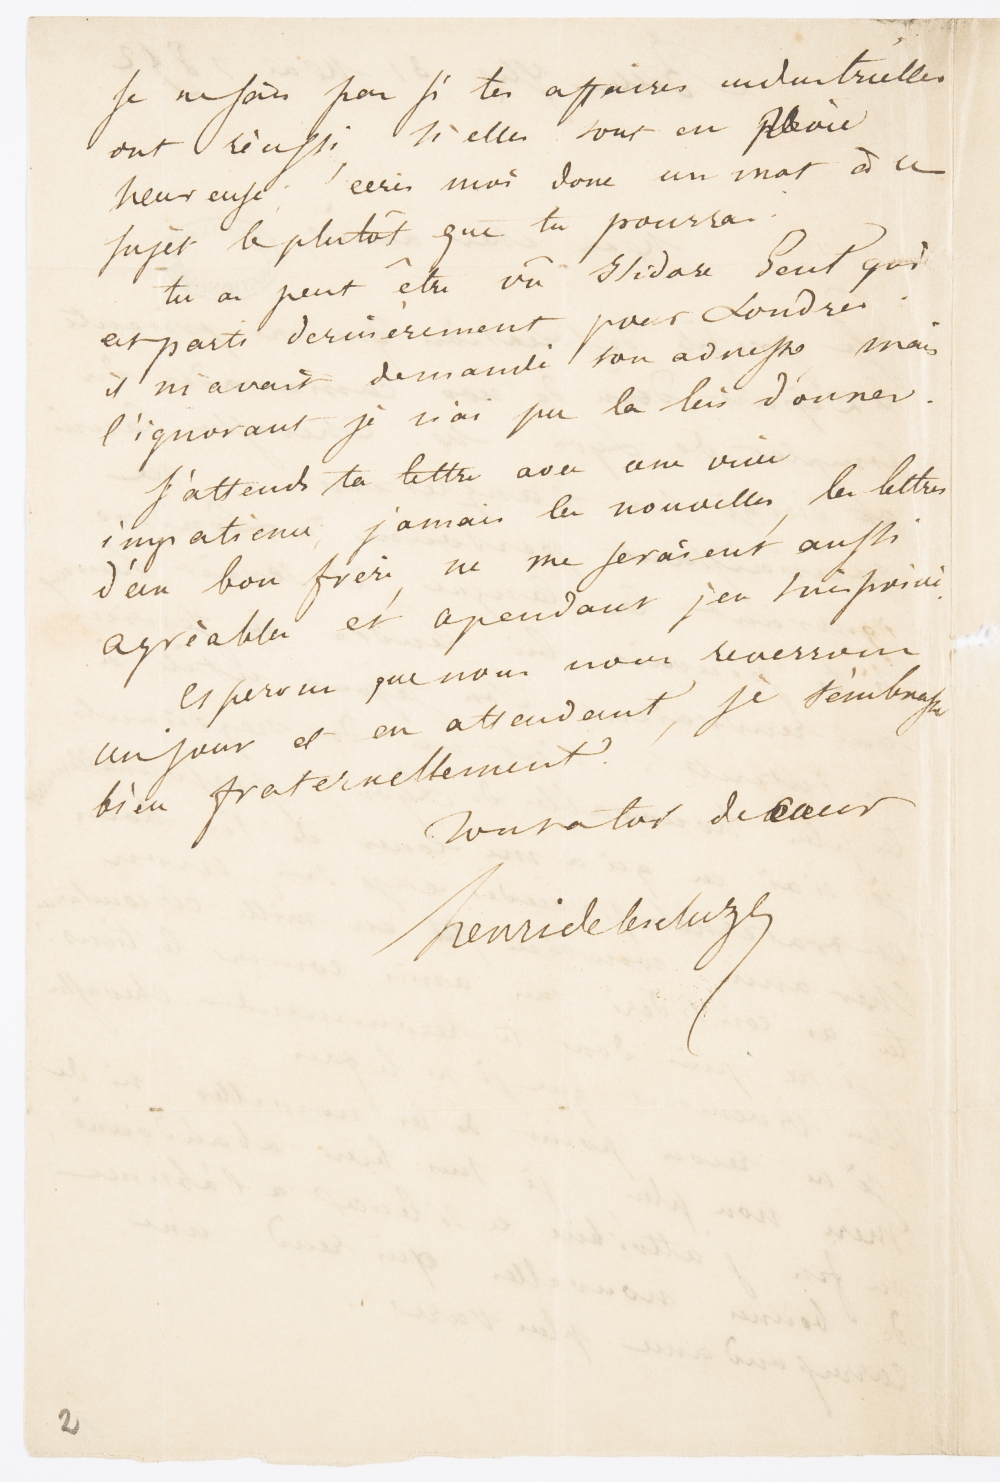 Je ne sais pas si tes affaires industrielles
ont réussi, si elles sont en voie
heureuse; écris moi donc un mot à ce
sujet le plutôt que tu pourras.
tu as peut être vû Isidore Gent qui
est parti dernièrement pour Londres.
il m'avait demandé ton adresse mais
l'ignorant je n'ai pu la lui donner.
J'attends ta lettre avec une vive
impatience, jamais les nouvelles, les lettres
d'un bon frère, ne me seraient aussi
agréables et cependant j'en suis privé.
Esperons que nous nous reverrons
un jour et en attendant, je t'embrasse
bien fraternellement.
Tout a toi de cœur
henri delescluze
2